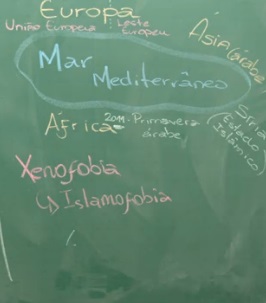 Europa
União Europeia Leste Europeu
Ásia (árabe)
Mar
Mediterrâneo
África 2011-Primavera árabe
Síria
(Estado
Islâmico)
Xenofobia
↳ Islamofobia